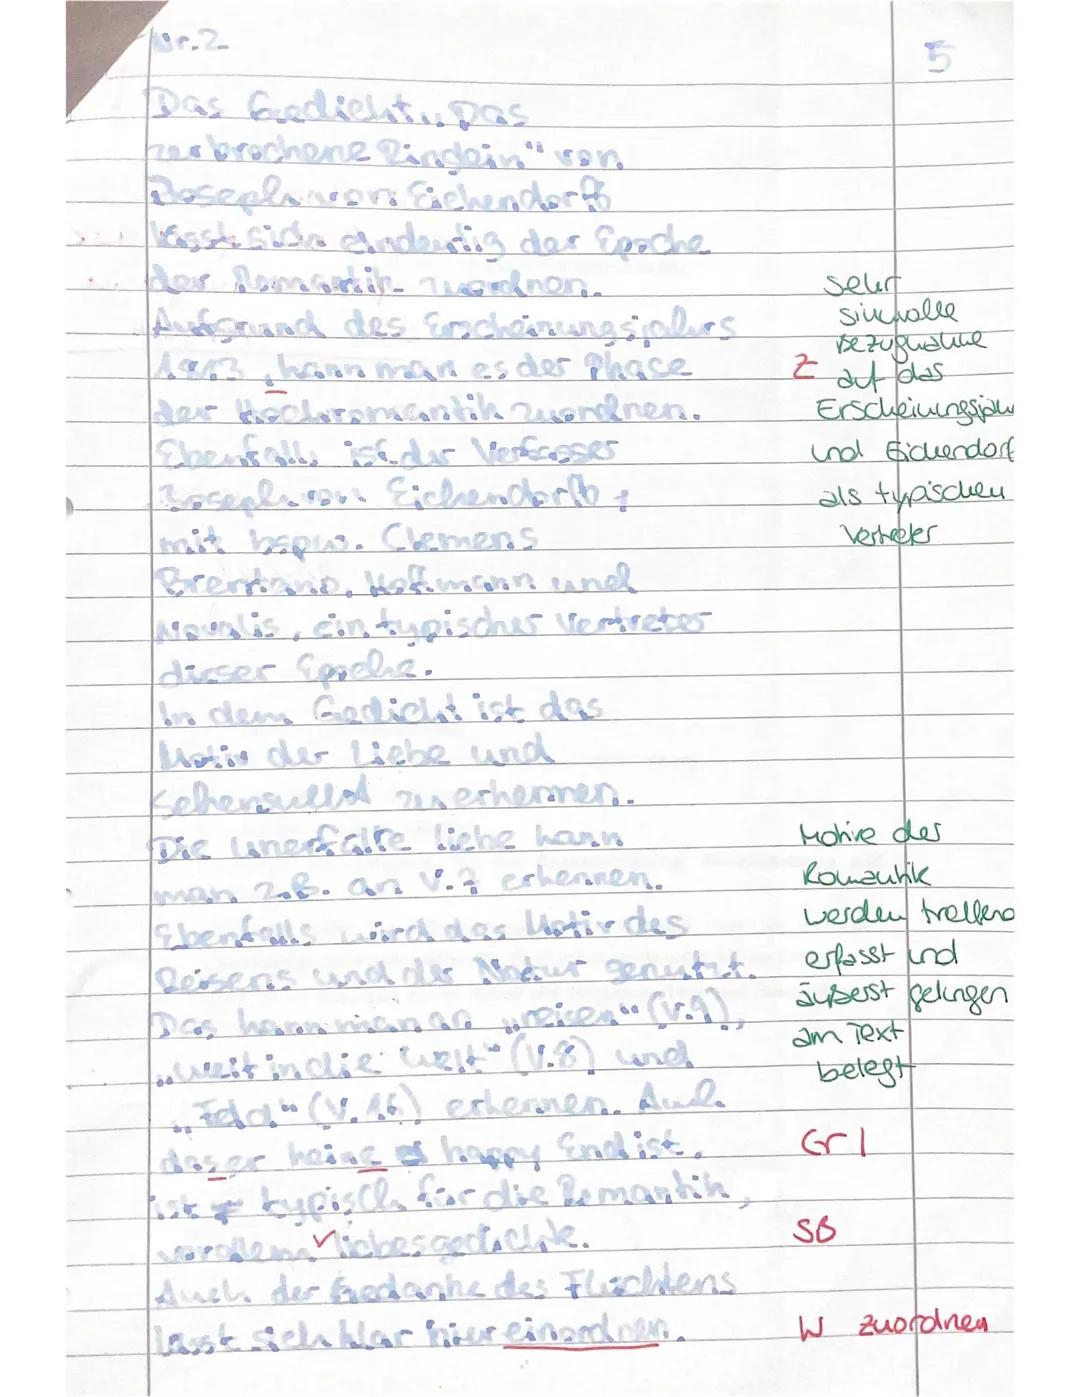 Nr. 2
5
Das Gedicht „Das
zerbrochene Ringlein" von
Joseph von Eichendorff
lässt sich eindeutig der Epoche
der Romantik zuordnen.
Aufgrund des Erscheinungsjahrs
1813, kann man es der Phase
der Hochromantik zuordnen.
Ebenfalls ist der Verfasser
Joseph von Eichendorff,
mit bspw. Clemens
Brentano, Hoffmann und
Novalis, ein typischer Vertreter
dieser Epoche.
In dem Gedicht ist das
Motiv der Liebe und
zu erkennen.
Die unerfüllte Liebe kann
man z.B. an V.7 erkennen.
Ebenfalls wird das Motiv des
Reisens und der Natur genutzt.
Das kann man an „reisen" (V.9),
„weit in die Welt" (V.8) und
„Feld" (V.16) erkennen. Auch
das er keine happy End ist,
ist typisch für die Romantik,
vorallem liebesgedichte.
Auch der Gedanke des Flüchtens
lässt sich klar hier einordnen.
sehr
sinnvolle
Bezugnahme
Z auf das
Erscheinungsjahr
und Eichendorf
als typischen
Vertreter
Motive der
Romantik
werden treffend
erfasst und
äußerst gelungen
am Text
belegt
Gr |
SB
W zuordnen